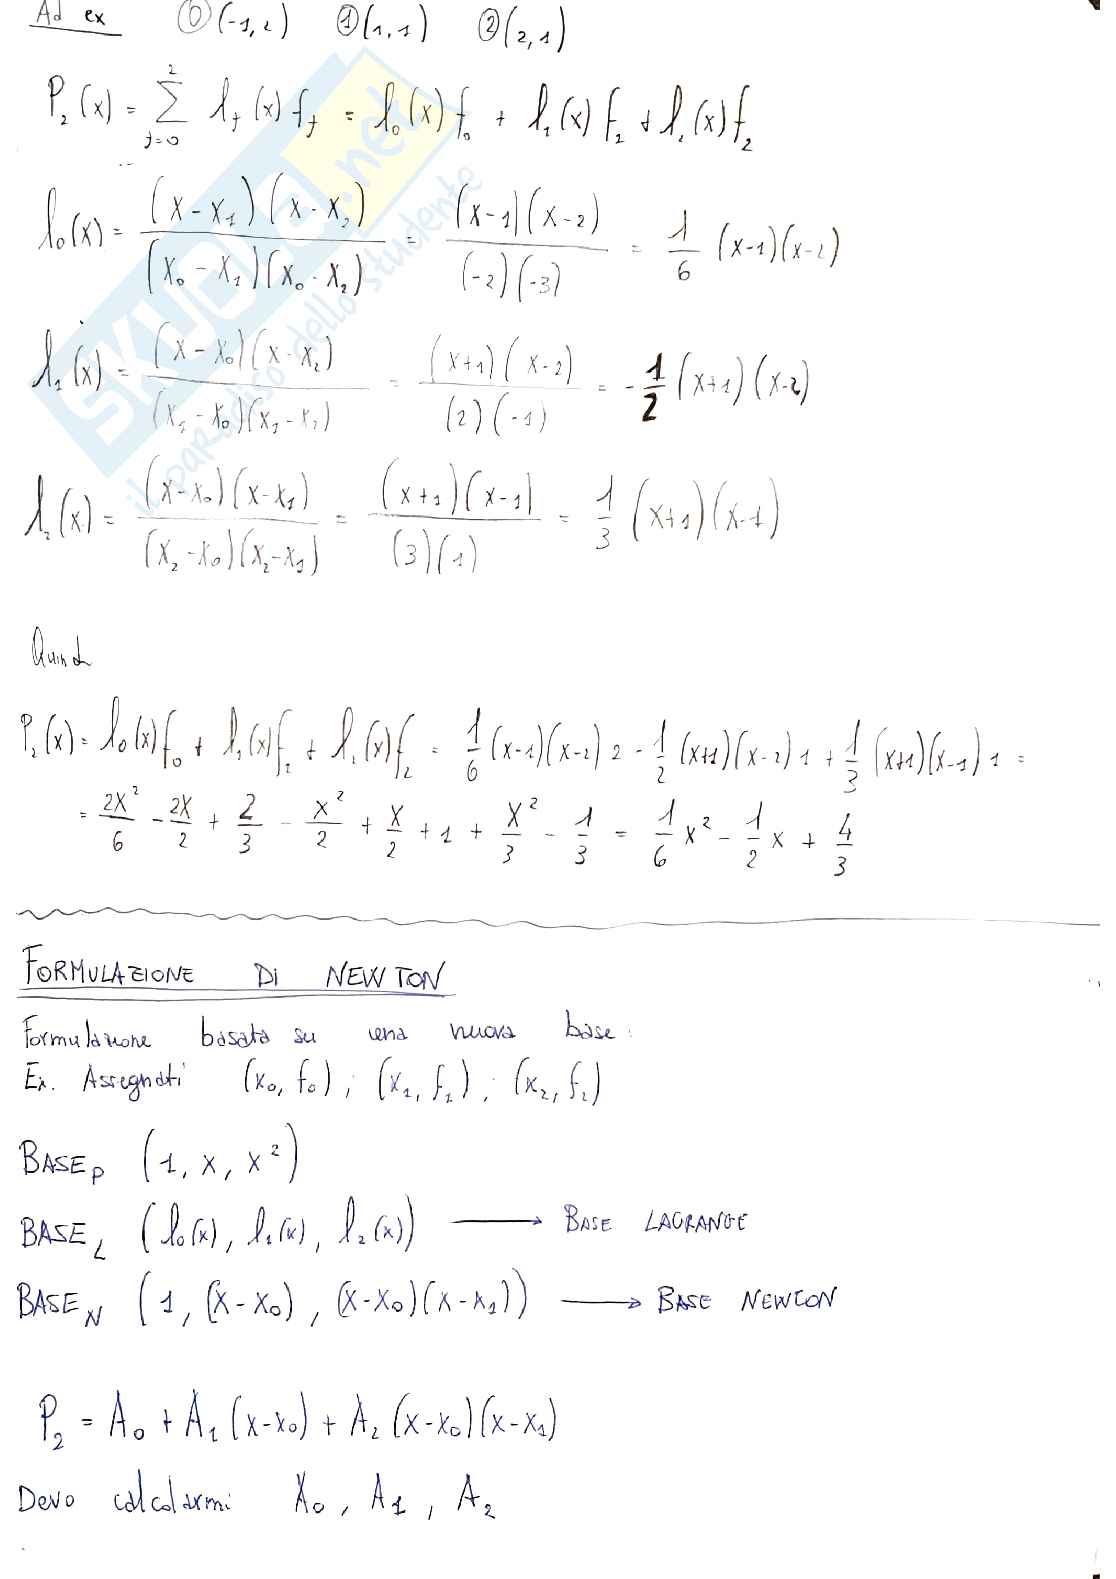 Ad ex ⓪(-1,2) ①(1,1) ②(2,1)
P₂(x) = Σ_{j=0}^{2} l_j(x) f_j = l₀(x) f₀ + l₁(x) f₂ + l₂(x) f₂
l₀(x) = (x-x₁)(x-x₂) / (x₀-x₁)(x₀-x₂) = (x-1)(x-2) / (-2)(-3) = 1/6 (x-1)(x-2)
l₁(x) = (x-x₀)(x-x₂) / (x₁-x₀)(x₁-x₂) = (x+1)(x-2) / (2)(-1) = -1/2 (x+1)(x-2)
l₂(x) = (x-x₀)(x-x₁) / (x₂-x₀)(x₂-x₁) = (x+1)(x-1) / (3)(1) = 1/3 (x+1)(x-1)
Quindi
P₂(x) = l₀(x)f₀ + l₁(x)f₂ + l₂(x)f₂ = 1/6 (x-1)(x-2) 2 - 1/2 (x+1)(x-2) 1 + 1/3 (x+1)(x-1) 1 =
= 2x²/6 - 2x/2 + 2/3 - x²/2 + x/2 + 1 + x²/3 - 1/3 = 1/6 x² - 1/2 x + 4/3
FORMULAZIONE Di NEWTON
Formulazione basata su una nuova base:
Ex. Assegnati (x₀, f₀); (x₁, f₁); (x₂, f₂)
BASE_P (1, x, x²)
BASE_L (l₀(x), l₁(x), l₂(x)) → BASE LAGRANGE
BASE_N (1, (x-x₀), (x-x₀)(x-x₁)) → BASE NEWTON
P₂ = A₀ + A₁(x-x₀) + A₂(x-x₀)(x-x₁)
Devo calcolarmi X₀, A₁, A₂
SKUOLA.net
il paradiso dello studente